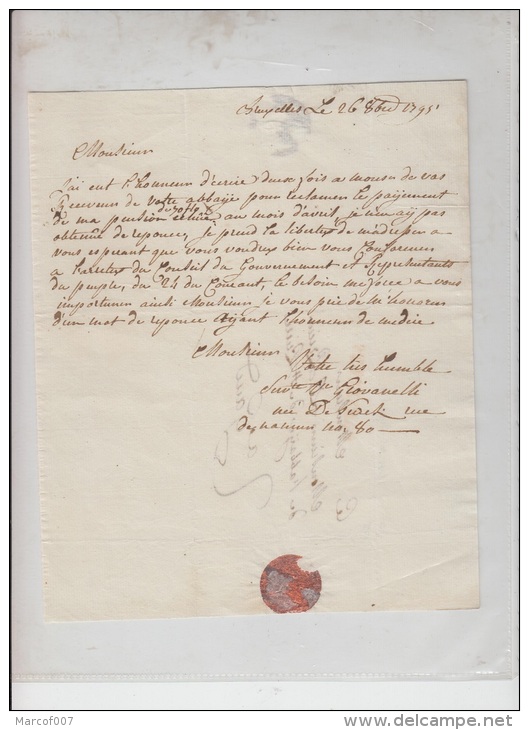 Bruxelles Le 26 8bre 1795
Monsieur
J'ai eut l'honneur d'ecrire deux fois a monsr de vas
Receveur de votre abbaye pour reclamer le païjement
de ma pension echue au mois d'avril, je n'en aij pas
obtenue de reponce, Je prend la libertez de m'adresser a
vous esperant que vous voudrez bien vous Conformer
a l'aretez du Conseil du Gouvernement et Representants
du peuple, du 24 du Courant, le besoin me force a vous
importuner ainsi Monsieur, je vous prie de m'honorer
d'un mot de reponce ayant l'honneur de me dire
Monsieur
Votre tres humble
Servte Giovanelli
née De rue
de namur no. 80
Marcof007
www.delcampe.net